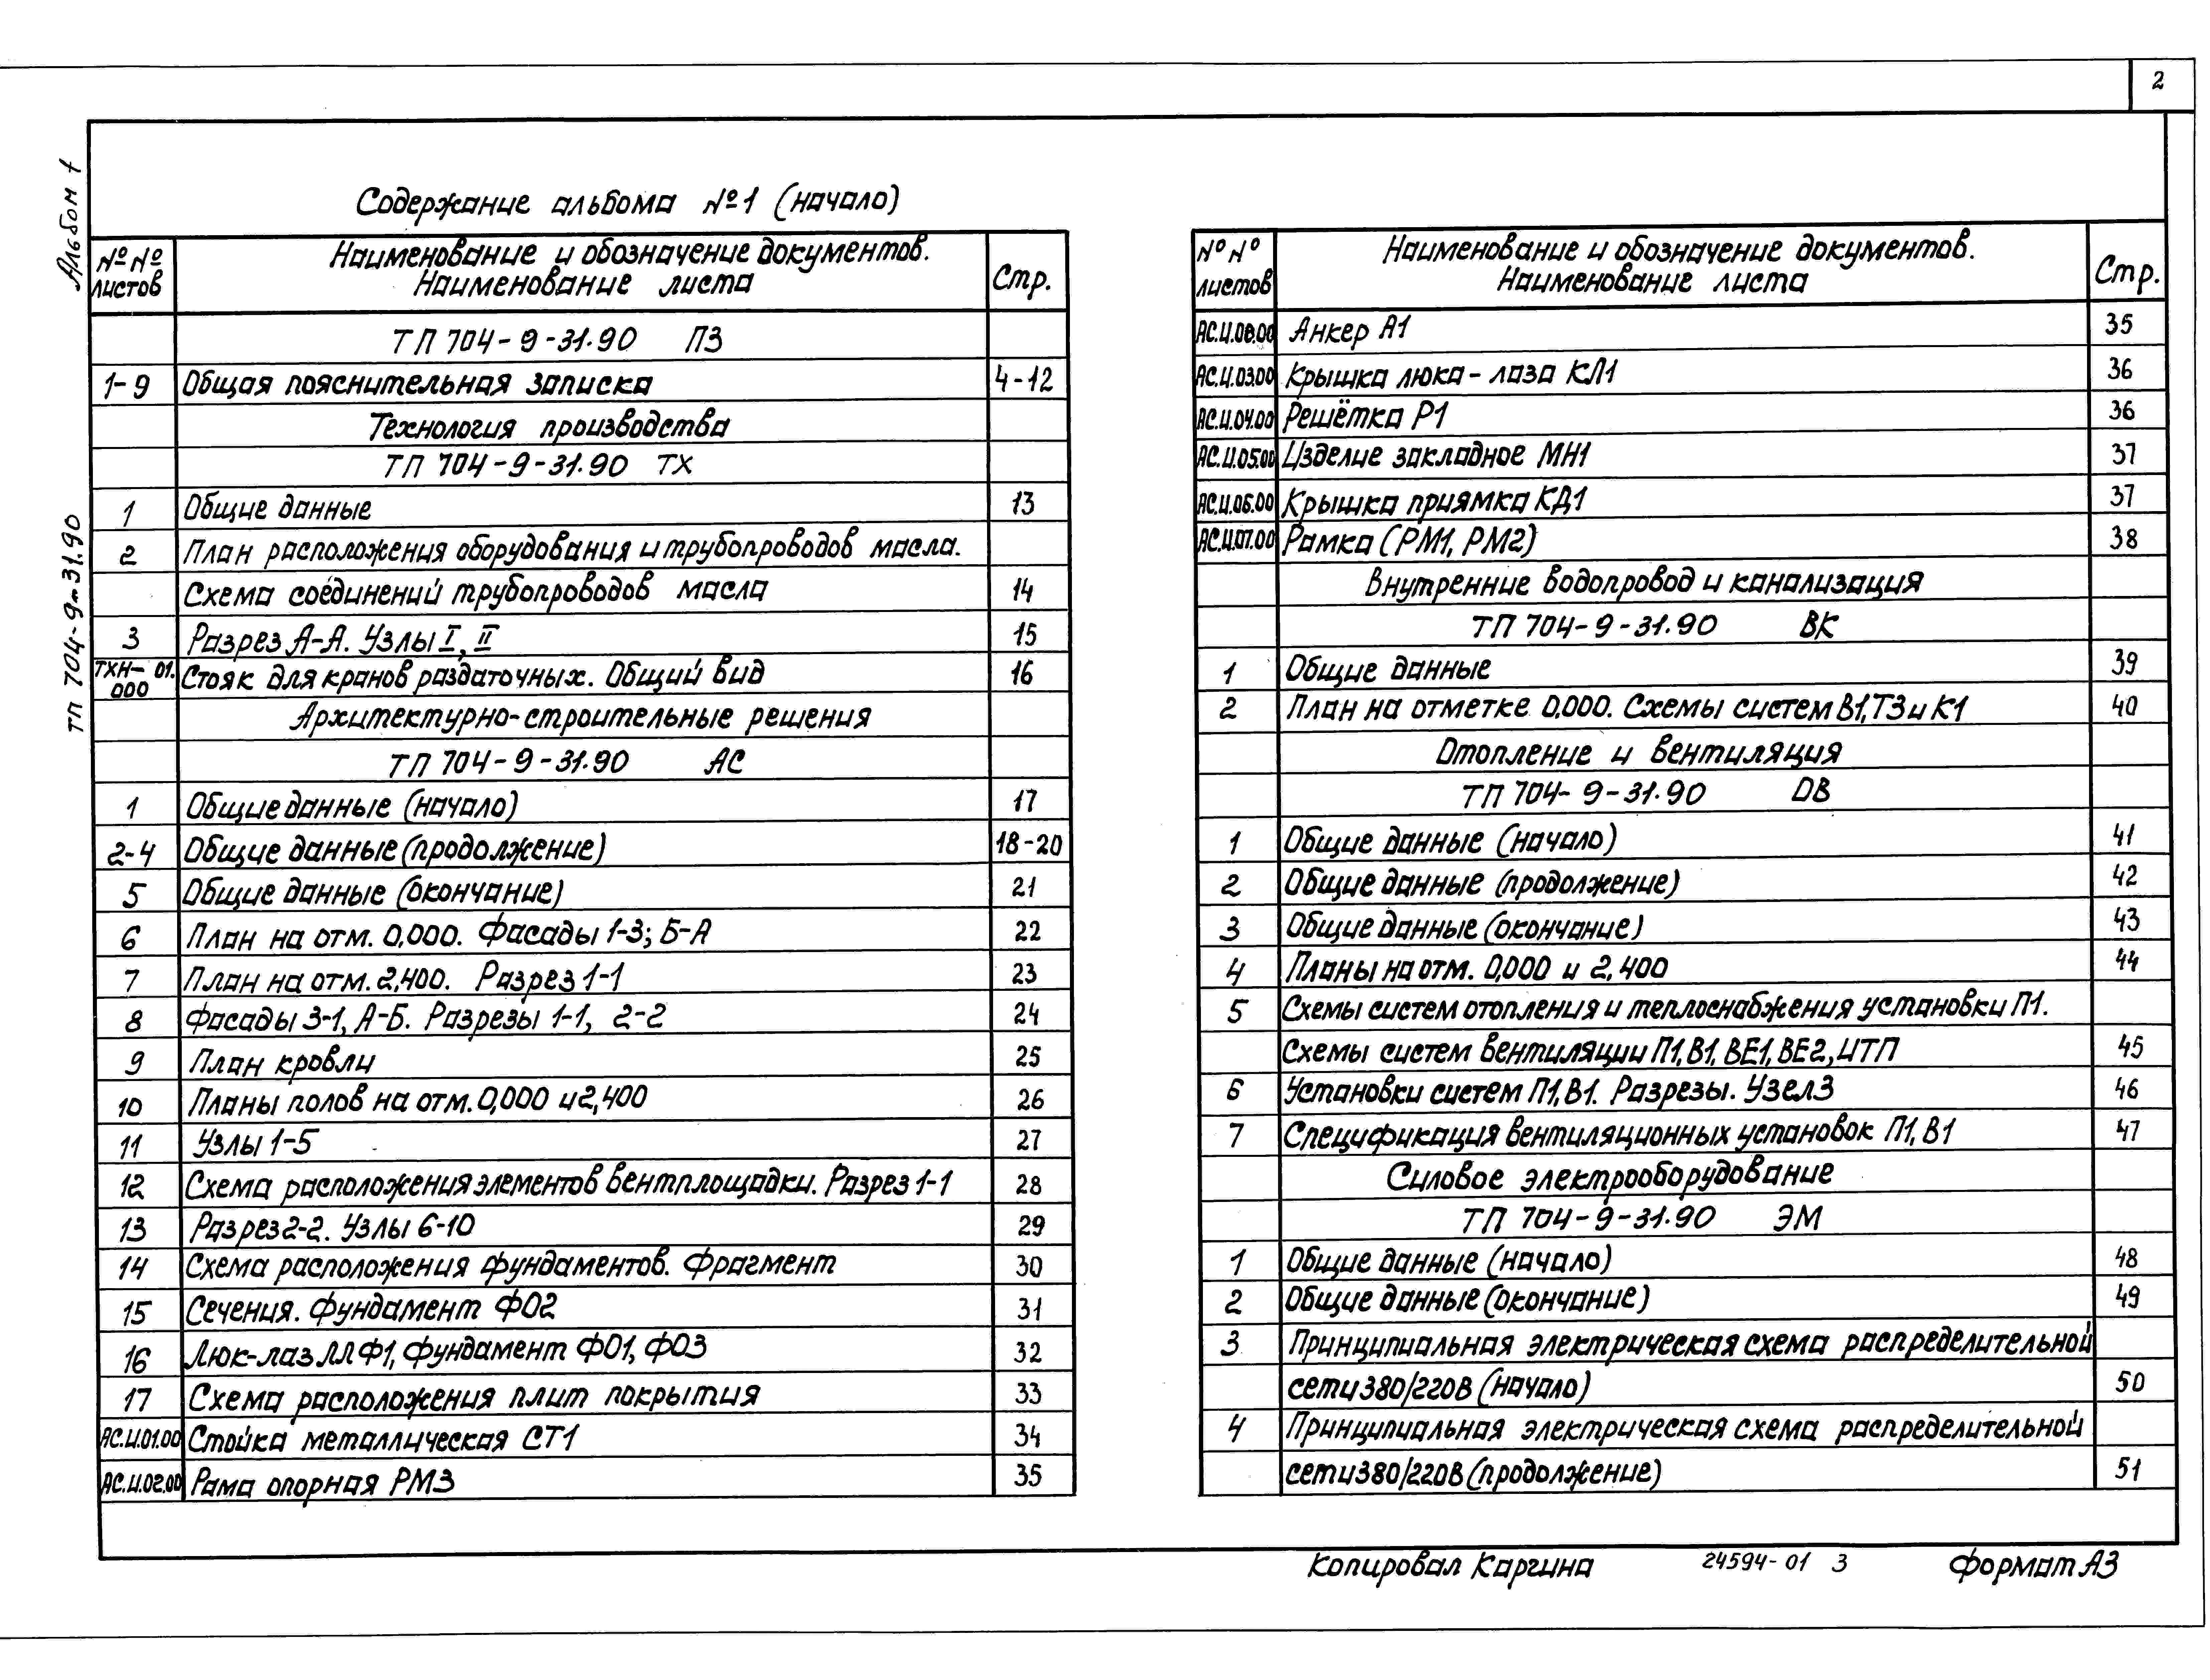 2
Альбом 1
ТП 704-9-31.90
Содержание альбома №1 (начало)
№ №
листов
Наименование и обозначение документов.
Наименование листа
Стр.
ТП 704-9-31.90 ПЗ
1-9 Общая пояснительная записка 4-12
Технология производства
ТП 704-9-31.90 ТХ
1 Общие данные 13
2 План расположения оборудования и трубопроводов масла.
Схема соединений трубопроводов масла 14
3 Разрез А-А. Узлы I, II 15
ТХН-01.
000
Стояк для кранов раздаточных. Общий вид 16
Архитектурно-строительные решения
ТП 704-9-31.90 АС
1 Общие данные (начало) 17
2-4 Общие данные (продолжение) 18-20
5 Общие данные (окончание) 21
6 План на отм. 0,000. Фасады 1-3; Б-А 22
7 План на отм. 2,400. Разрез 1-1 23
8 Фасады 3-1, А-Б. Разрезы 1-1, 2-2 24
9 План кровли 25
10 Планы полов на отм. 0,000 и 2,400 26
11 Узлы 1-5 27
12 Схема расположения элементов вентплощадки. Разрез 1-1 28
13 Разрез 2-2. Узлы 6-10 29
14 Схема расположения фундаментов. Фрагмент 30
15 Сечения. Фундамент Ф02 31
16 Люк-лаз ЛЛФ1, фундамент Ф01, Ф03 32
17 Схема расположения плит покрытия 33
АС.И.01.00 Стойка металлическая СТ1 34
АС.И.02.00 Рама опорная РМ3 35
№ №
листов
Наименование и обозначение документов.
Наименование листа
Стр.
АС.И.08.00 Анкер А1 35
АС.И.03.00 Крышка люка-лаза КЛ1 36
АС.И.04.00 Решётка Р1 36
АС.И.05.00 Изделие закладное МН1 37
АС.И.06.00 Крышка приямка КД1 37
АС.И.07.00 Рамка (РМ1, РМ2) 38
Внутренние водопровод и канализация
ТП 704-9-31.90 ВК
1 Общие данные 39
2 План на отметке 0,000. Схемы систем В1, Т3 и К1 40
Отопление и вентиляция
ТП 704-9-31.90 ОВ
1 Общие данные (начало) 41
2 Общие данные (продолжение) 42
3 Общие данные (окончание) 43
4 Планы на отм. 0,000 и 2,400 44
5 Схемы систем отопления и теплоснабжения установки П1.
Схемы систем вентиляции П1, В1, ВЕ1, ВЕ2, ИТП 45
6 Установки систем П1, В1. Разрезы. Узел 3 46
7 Спецификация вентиляционных установок П1, В1 47
Силовое электрооборудование
ТП 704-9-31.90 ЭМ
1 Общие данные (начало) 48
2 Общие данные (окончание) 49
3 Принципиальная электрическая схема распределительной
сети 380/220В (начало) 50
4 Принципиальная электрическая схема распределительной
сети 380/220В (продолжение) 51
Копировал Каргина 24594-01 3 Формат А3